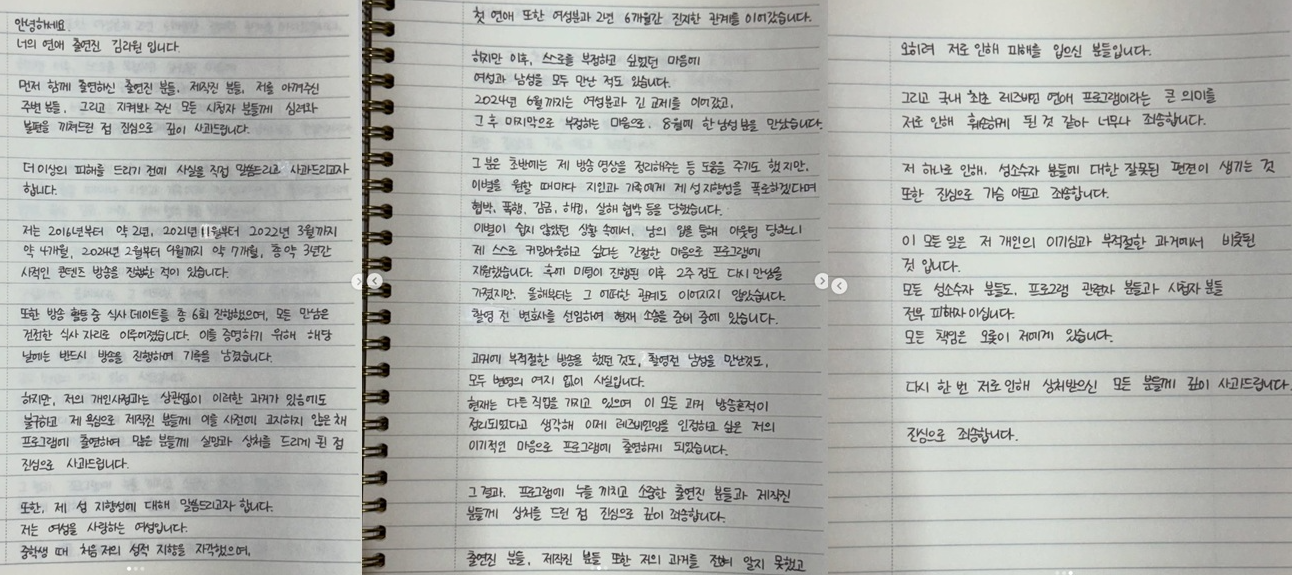 안녕하세요.
너의 연애 출연진 김리원 입니다.
먼저 함께 출연하신 출연진 분들, 제작진 분들, 저를 아껴주신
주변 분들, 그리고 지켜봐 주신 모든 시청자 분들께 심려와
불편을 끼쳐드린 점 진심으로 깊이 사과드립니다.
더 이상의 피해를 드리기 전에 사실을 직접 말씀드리고 사과드리고자
합니다.
저는 2016년부터 약 2년, 2021년 11월부터 2022년 3월까지
약 4개월, 2024년 2월부터 9월까지 약 7개월, 총 약 3년간
사적인 콘텐츠 방송을 진행한 적이 있습니다.
또한 방송 활동 중 식사 데이트를 총 6회 진행했으며, 모든 만남은
건전한 식사 자리로 이루어졌습니다. 이를 증명하기 위해 해당
날에는 반드시 방송을 진행하며 기록을 남겼습니다.
하지만, 저의 개인사정과는 상관없이 이러한 과거가 있음에도
불구하고 제 욕심으로 제작진 분들께 이를 사전에 고지하지 않은 채
프로그램에 출연하여 많은 분들께 실망과 상처를 드리게 된 점
진심으로 사과드립니다.
또한, 제 성 지향성에 대해 말씀드리고자 합니다.
저는 여성을 사랑하는 여성입니다.
중학생 때 처음 저의 성적 지향을 자각했으며,
첫 연애 또한 여성분과 2년 6개월간 진지한 관계를 이어갔습니다.
하지만 이후, 스스로를 부정하고 싶었던 마음에
여성과 남성을 모두 만난 적도 있습니다.
2024년 6월까지는 여성분과 긴 교제를 이어갔고,
그 후 마지막으로 부정하는 마음으로, 8월에 한 남성분을 만났습니다.
그 분은 초반에는 제 방송 영상을 정리해주는 등 도움을 주기도 했지만,
이별을 원할 때마다 지인과 가족에게 제 성 지향성을 폭로하겠다며
협박, 폭행, 감금, 해명, 살해 협박 등을 당했습니다.
이별이 쉽지 않았던 상황 속에서, 남의 입을 통해 아웃팅 당하느니
제 스스로 커밍아웃하고 싶다는 간절한 마음으로 프로그램에
지원했습니다. 후에 미팅이 진행된 이후 2주 정도 다시 만남을
가졌지만, 올해부터는 그 어떠한 관계도 이어지지 않았습니다.
촬영 전 변호사를 선임하여 현재 소송을 준비 중에 있습니다.
과거에 부적절한 방송을 했던 것도, 촬영전 남성을 만난것도,
모두 변명의 여지 없이 사실입니다.
현재는 다른 직업을 가지고 있으며 이 모든 과거 방송흔적이
정리되었다고 생각해 이제 레즈비언임을 인정하고 싶은 저의
이기적인 마음으로 프로그램에 출연하게 되었습니다.
그 결과, 프로그램에 누를 끼치고 소중한 출연진 분들과 제작진
분들께 상처를 드린 점 진심으로 깊이 죄송합니다.
출연진 분들, 제작진 분들 또한 저의 과거를 전혀 알지 못했고
오히려 저로 인해 피해를 입으신 분들입니다.
그리고 국내 최초 레즈비언 연애 프로그램이라는 큰 의미를
저로 인해 훼손하게 된 것 같아 너무나 죄송합니다.
저 하나로 인해, 성소수자 분들에 대한 잘못된 편견이 생기는 것
또한 진심으로 가슴 아프고 죄송합니다.
이 모든 일은 저 개인의 이기심과 부적절한 과거에서 비롯된
것 입니다.
모든 성소수자 분들도, 프로그램 관련자 분들과 시청자 분들
전부 피해자 이십니다.
모든 책임은 오롯이 저에게 있습니다.
다시 한 번 저로 인해 상처받으신 모든 분들께 깊이 사과드립니다.
진심으로 죄송합니다.